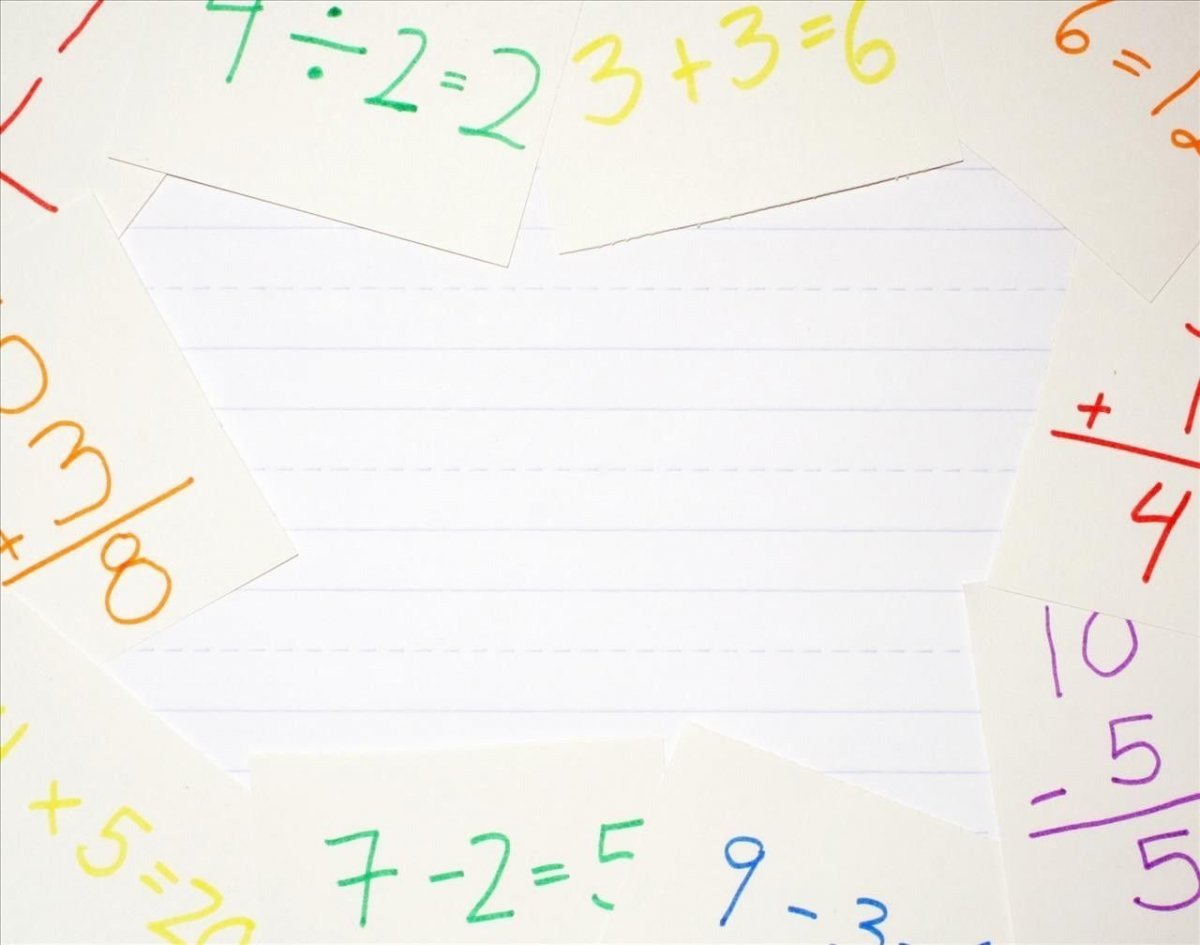 4 ÷ 2 = 2
3 + 3 = 6
6 = 12
0
3
+
8
+ 1
4
10
- 5
5
+ 5 = 20
7 - 2 = 5
9 - 3